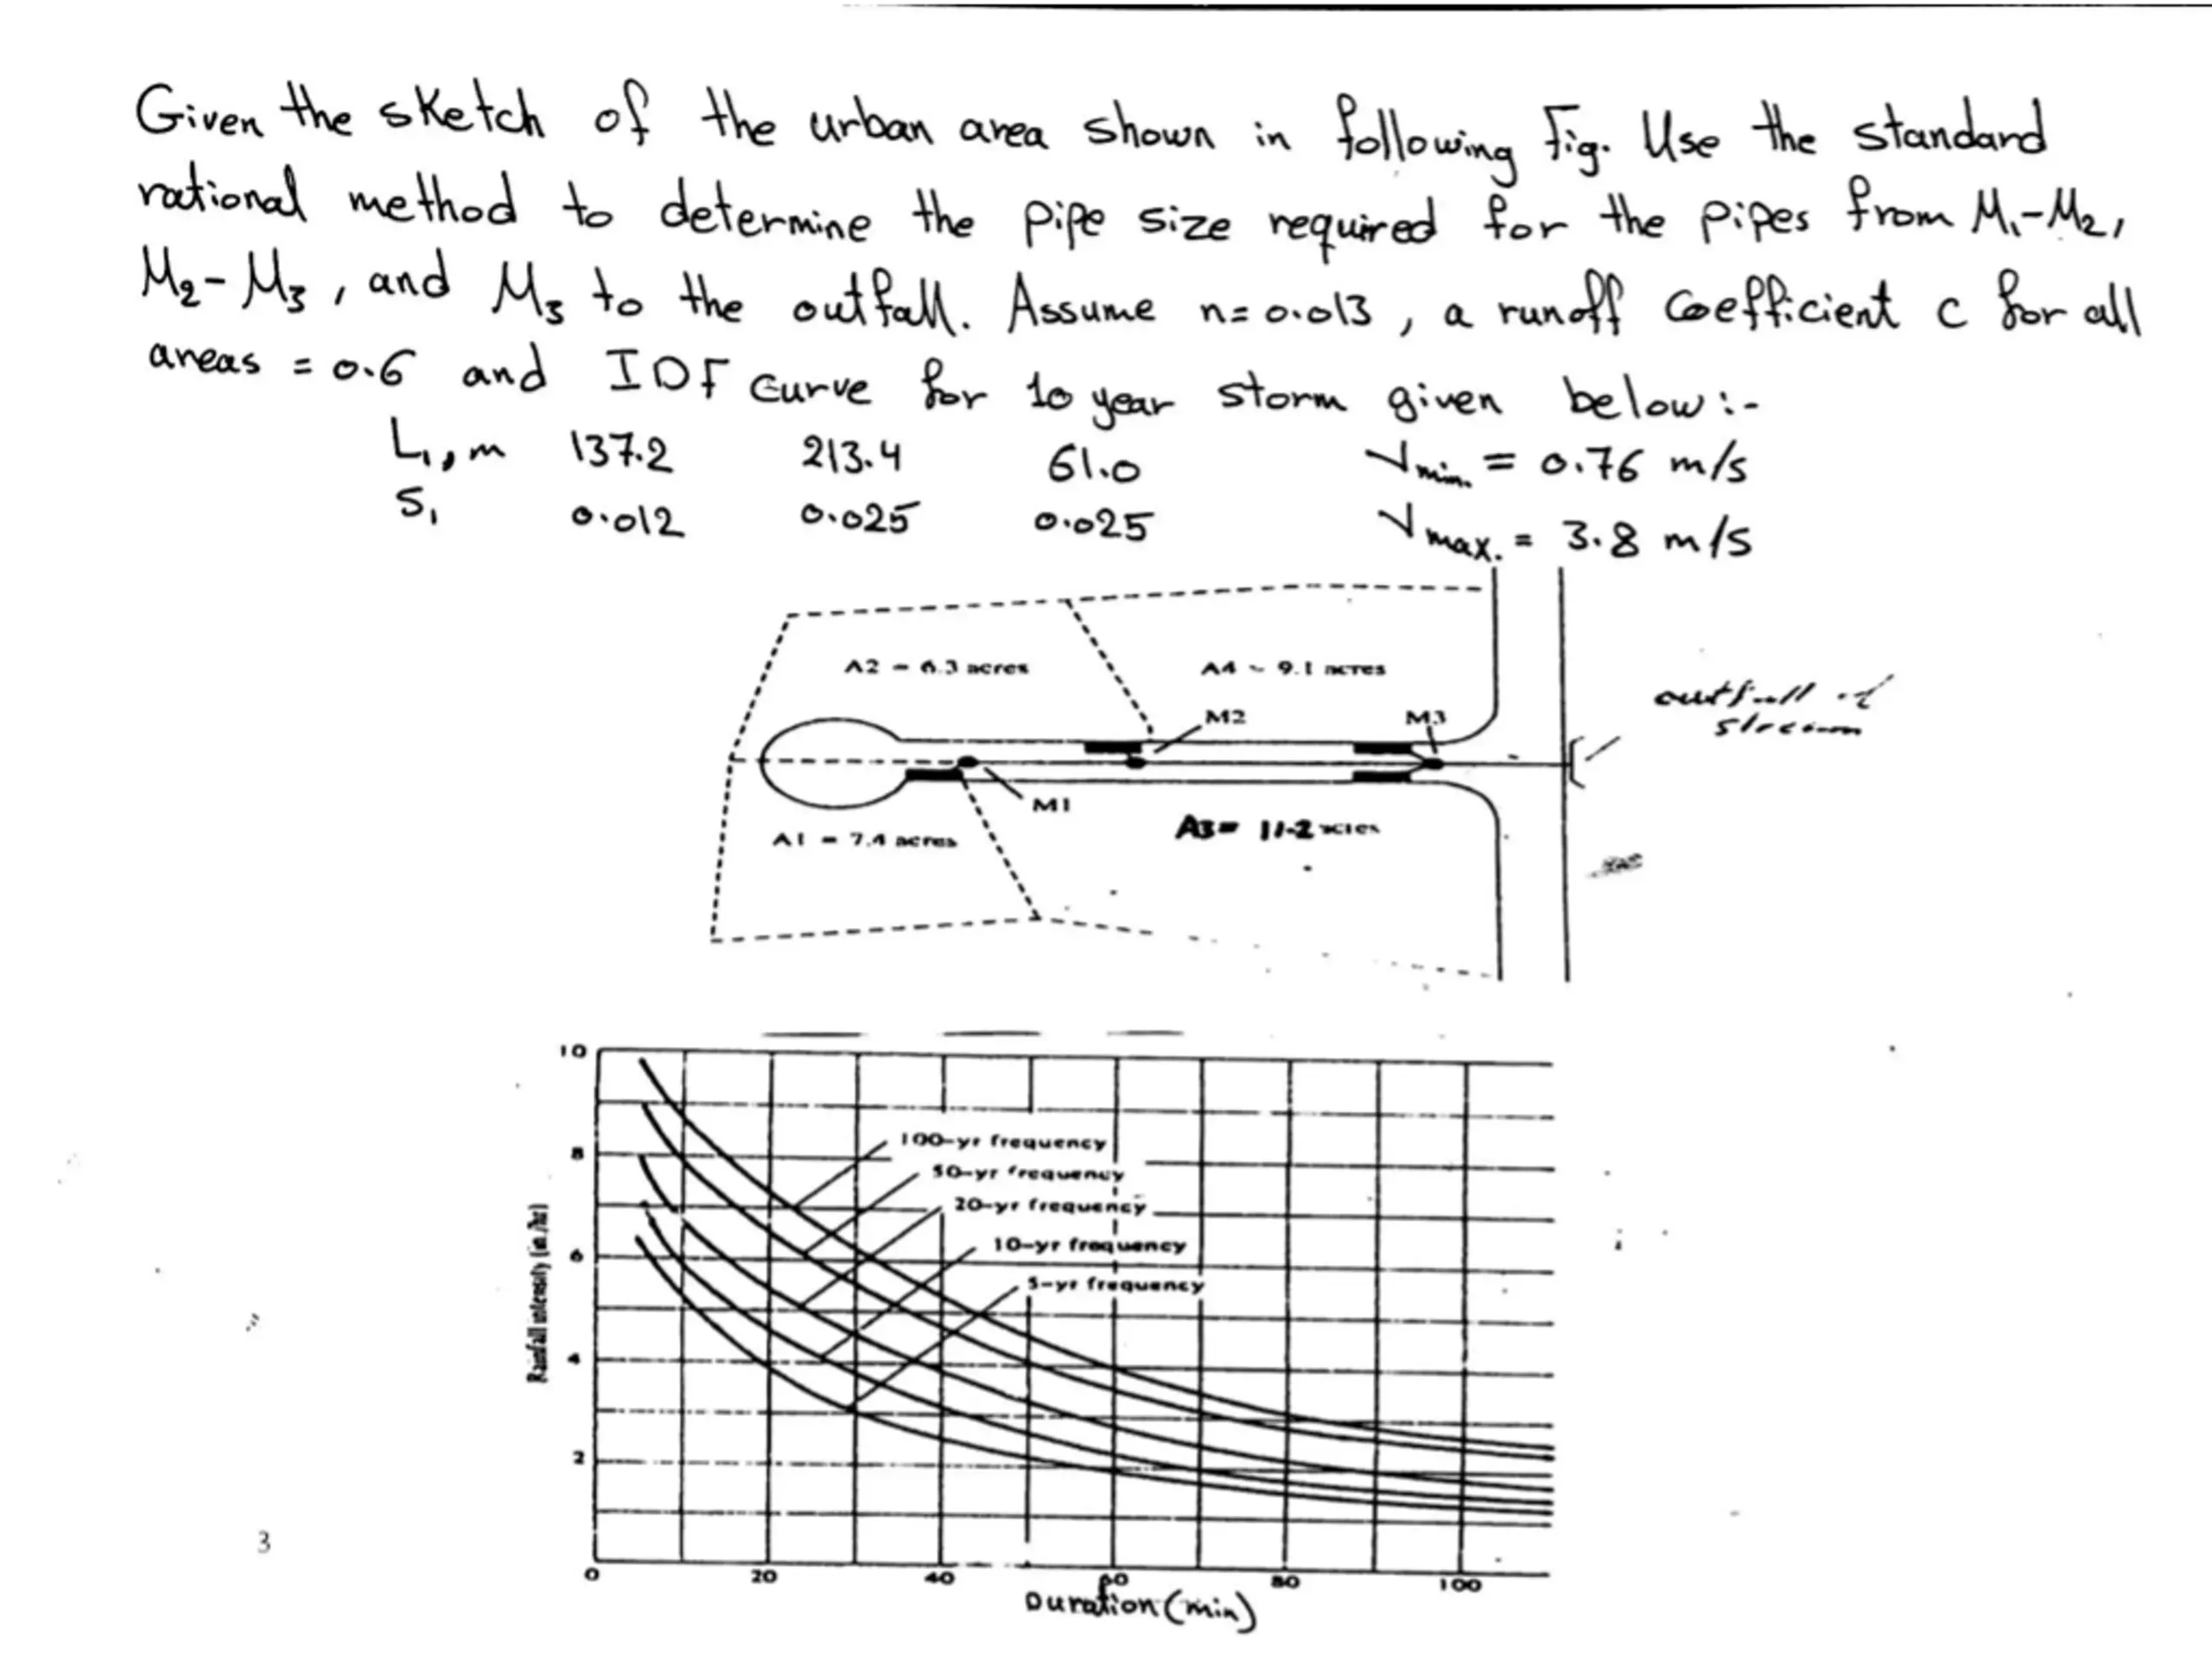 Given the sketch of the urban area shown in following Fig. Use the standard
rational method to determine the pipe size required for the pipes from M₁-M₂,
M₂-M₃, and M₃ to the outfall. Assume n=0.013, a runoff coefficient c for all
areas = 0.6 and IDF curve for 10 year storm given below:-
L₁, m 137.2 213.4 61.0 Vmin. = 0.76 m/s
S₁ 0.012 0.025 0.025 Vmax. = 3.8 m/s
A2 = 6.3 acres
A4 ~ 9.1 acres
M2
M3
M1
A1 = 7.4 acres
A3= 11.2 acres
10
8
6
4
2
Rainfall intensity (in/hr)
100-yr frequency
50-yr frequency
20-yr frequency
10-yr frequency
5-yr frequency
0 20 40 60 80 100
Duration (min)
3